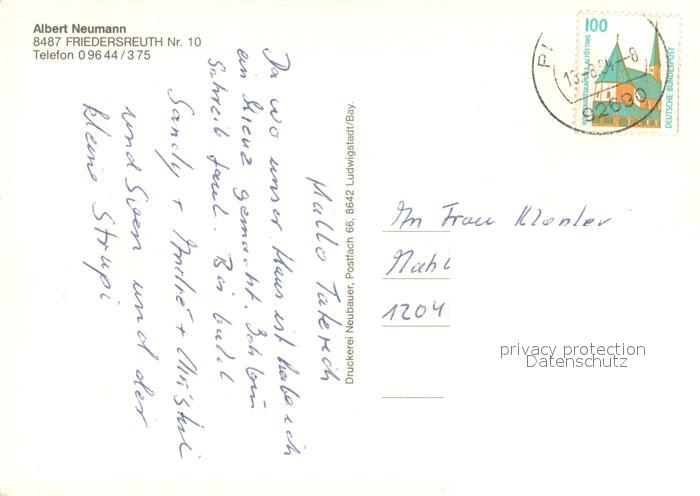 Albert Neumann
8487 FRIEDERSREUTH Nr. 10
Telefon 0 96 44 / 3 75
Hallo
Da wo unser Haus ist habe ich
ein Kreuz gemacht. Ich bin
Schreib faul. Bis bald
Sandy + André + Christel
und Sven und der
kleine Strupi
Druckerei Neubauer, Postfach 66, 8642 Ludwigstadt/Bay.
100
DEUTSCHE BUNDESPOST
WALLFAHRTSKAPELLE ALTÖTTING
-8.94.-8
92690
An Frau
1204
privacy protection
Datenschutz